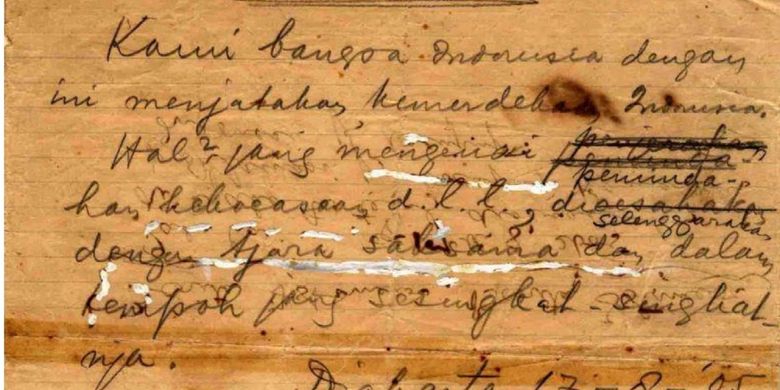 Kami bangsa Indonesia dengan
ini menjatakan kemerdekaan Indonesia.
Hal² jang mengenai penjerahan
peminda-
han kekoeasaan, d.l.l., dioesahakan
selenggarakan
dengan tjara saksama dan dalam
tempoh jang sesingkat-singkat-
nja.
Djakarta 17-8-'05